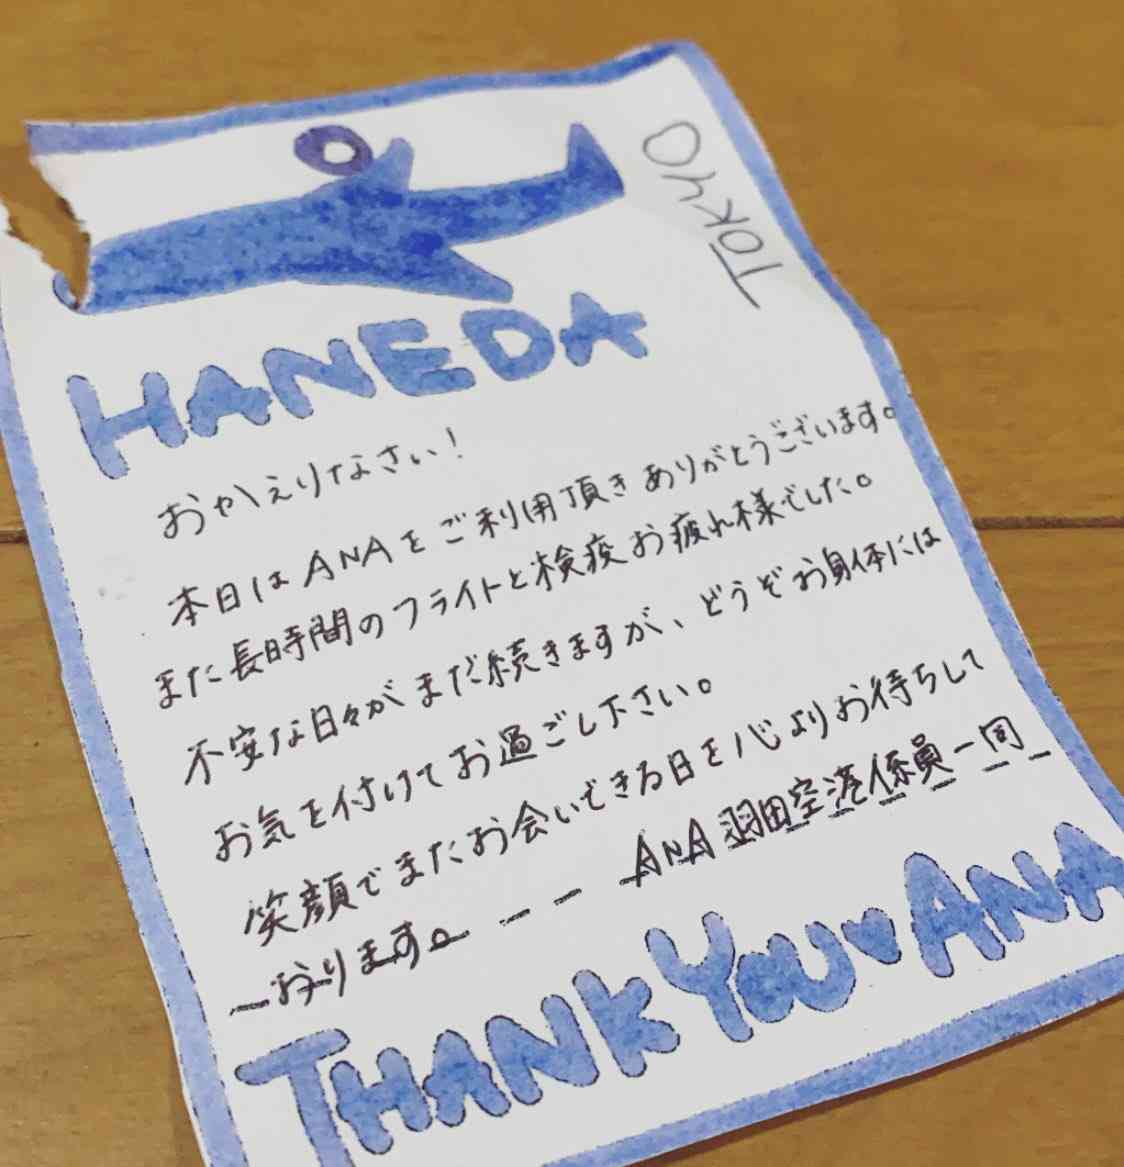 TOKYO
HANEDA
おかえりなさい!
本日はANAをご利用頂きありがとうございます。
また長時間のフライトと検疫お疲れ様でした。
不安な日々がまだ続きますが、どうぞお身体には
お気を付けてお過ごし下さい。
笑顔でまたお会いできる日を心よりお待ちして
おります。 ANA羽田空港係員一同
THANK YOU♥ANA